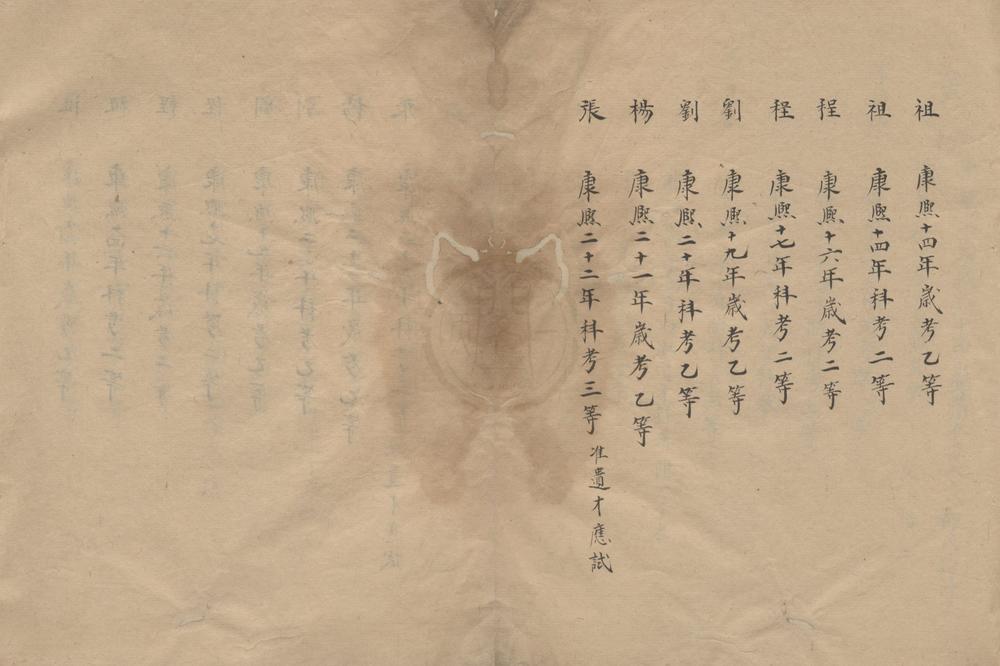 祖 康熈十四年歲考乙等
祖 康熈十四年科考二等
程 康熈十六年歲考二等
程 康熈十七年科考二等
劉 康熈十九年歲考乙等
劉 康熈二十年科考乙等
楊 康熈二十一年歲考乙等
張 康熈二十二年科考三等 准遺才應試